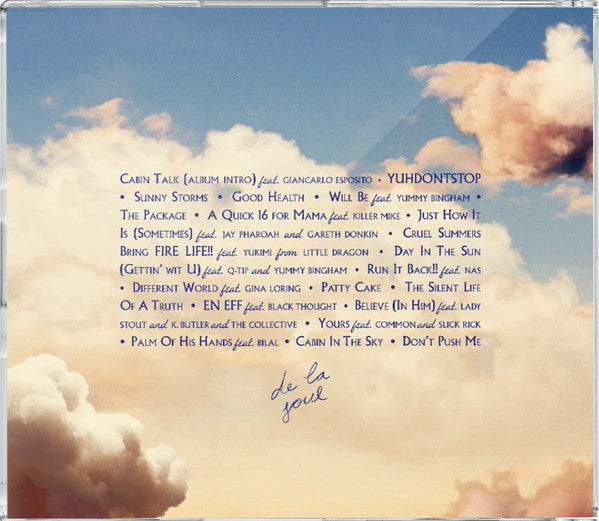 CABIN TALK (ALBUM INTRO) feat. GIANCARLO ESPOSITO • YUHDONTSTOP
• SUNNY STORMS • GOOD HEALTH • WILL BE feat. YUMMY BINGHAM •
THE PACKAGE • A QUICK 16 FOR MAMA feat. KILLER MIKE • JUST HOW IT
IS (SOMETIMES) feat. JAY PHAROAH and GARETH DONKIN • CRUEL SUMMERS
BRING FIRE LIFE!! feat. YUKIMI from LITTLE DRAGON • DAY IN THE SUN
(GETTIN' WIT U) feat. Q-TIP and YUMMY BINGHAM • RUN IT BACK!! feat. NAS
• DIFFERENT WORLD feat. GINA LORING • PATTY CAKE • THE SILENT LIFE
OF A TRUTH • EN EFF feat. BLACK THOUGHT • BELIEVE (IN HIM) feat. LADY
STOUT and K. BUTLER and THE COLLECTIVE • YOURS feat. COMMON and SLICK RICK
• PALM OF HIS HANDS feat. BILAL • CABIN IN THE SKY • DON'T PUSH ME
de la
soul